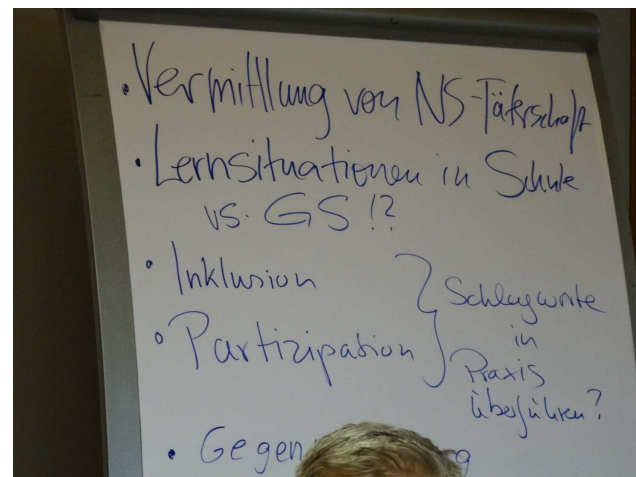 • Vermittlung von NS-Täterschaft
• Lernsituationen in Schule
vs. GS!?
• Inklusion
• Partizipation
Schlagworte
in
Praxis
überführen?
•